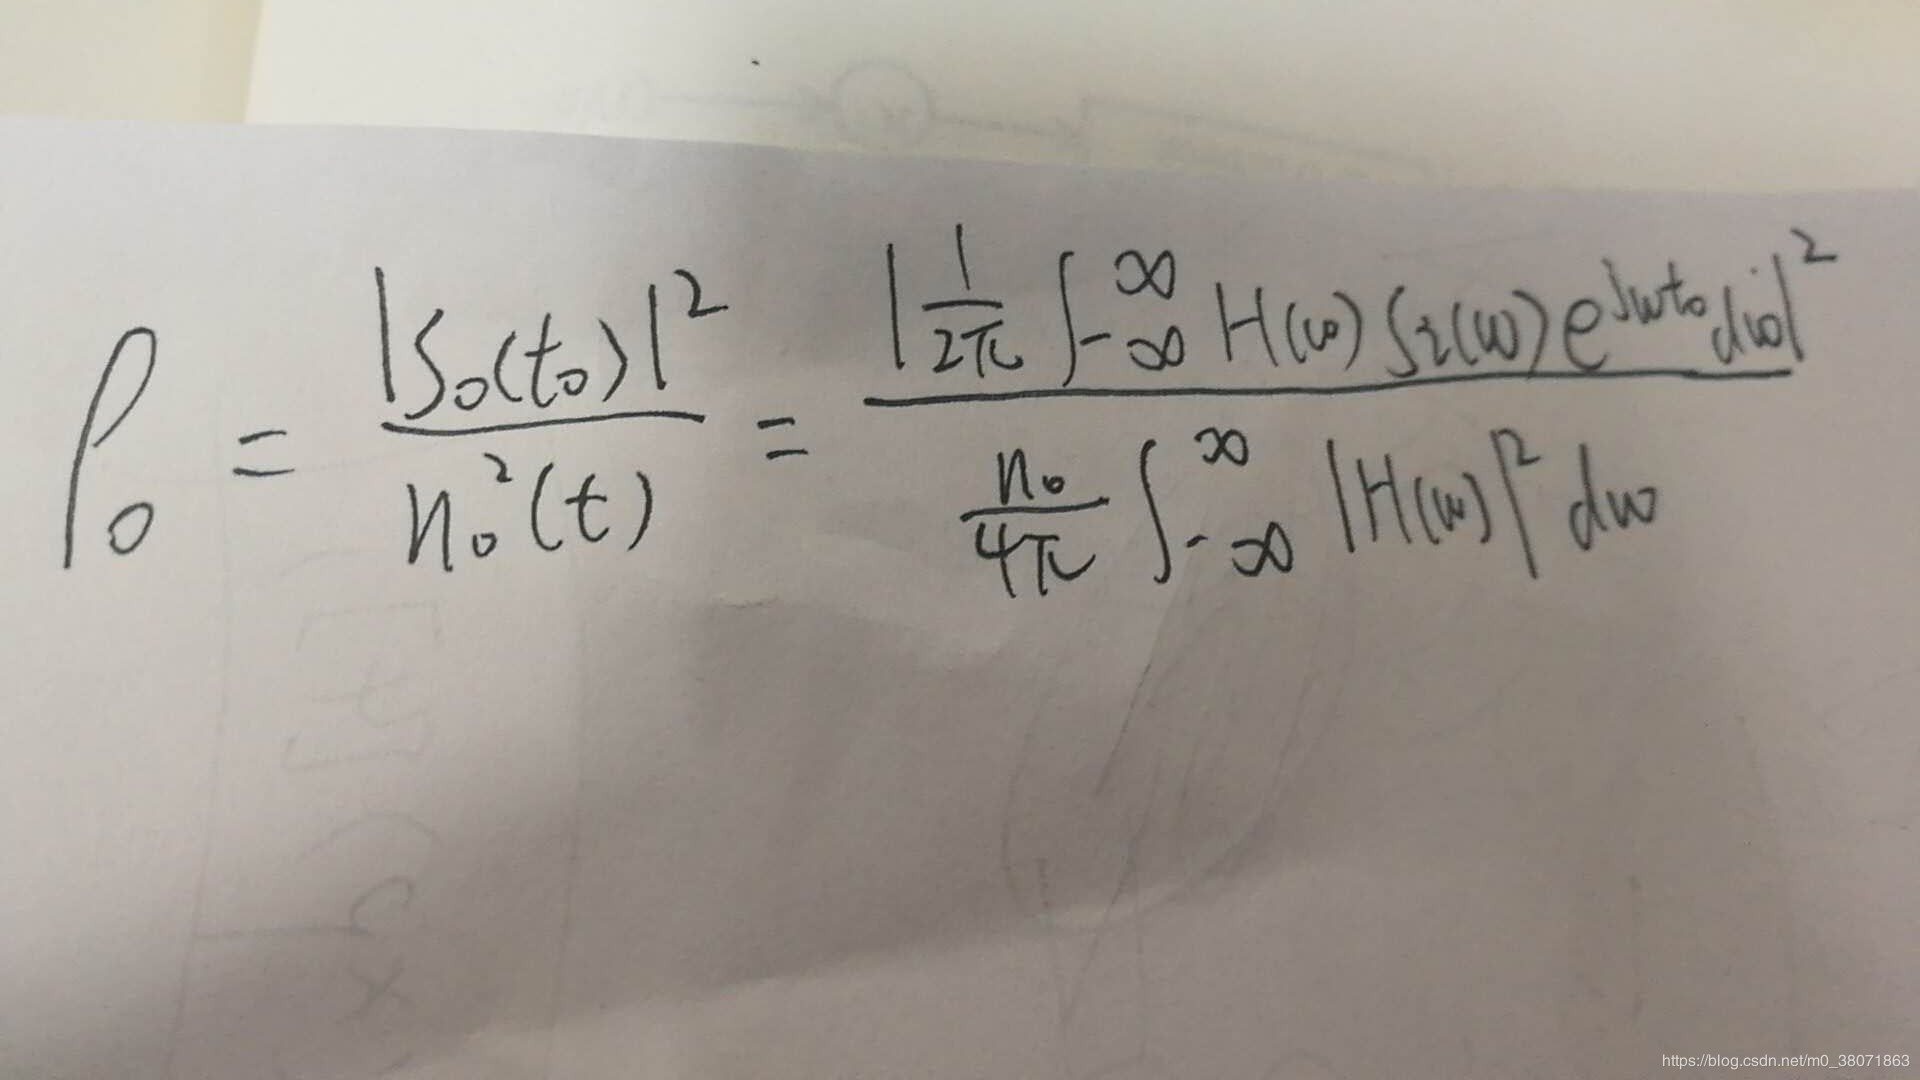 ρ₀ = |S₀(t₀)|² / n₀²(t) = |1/2π ∫_{-∞}^{∞} H(ω) S₂(ω) e^{jωt₀} dω|² / (n₀/4π ∫_{-∞}^{∞} |H(ω)|² dω)
https://blog.csdn.net/m0_38071863